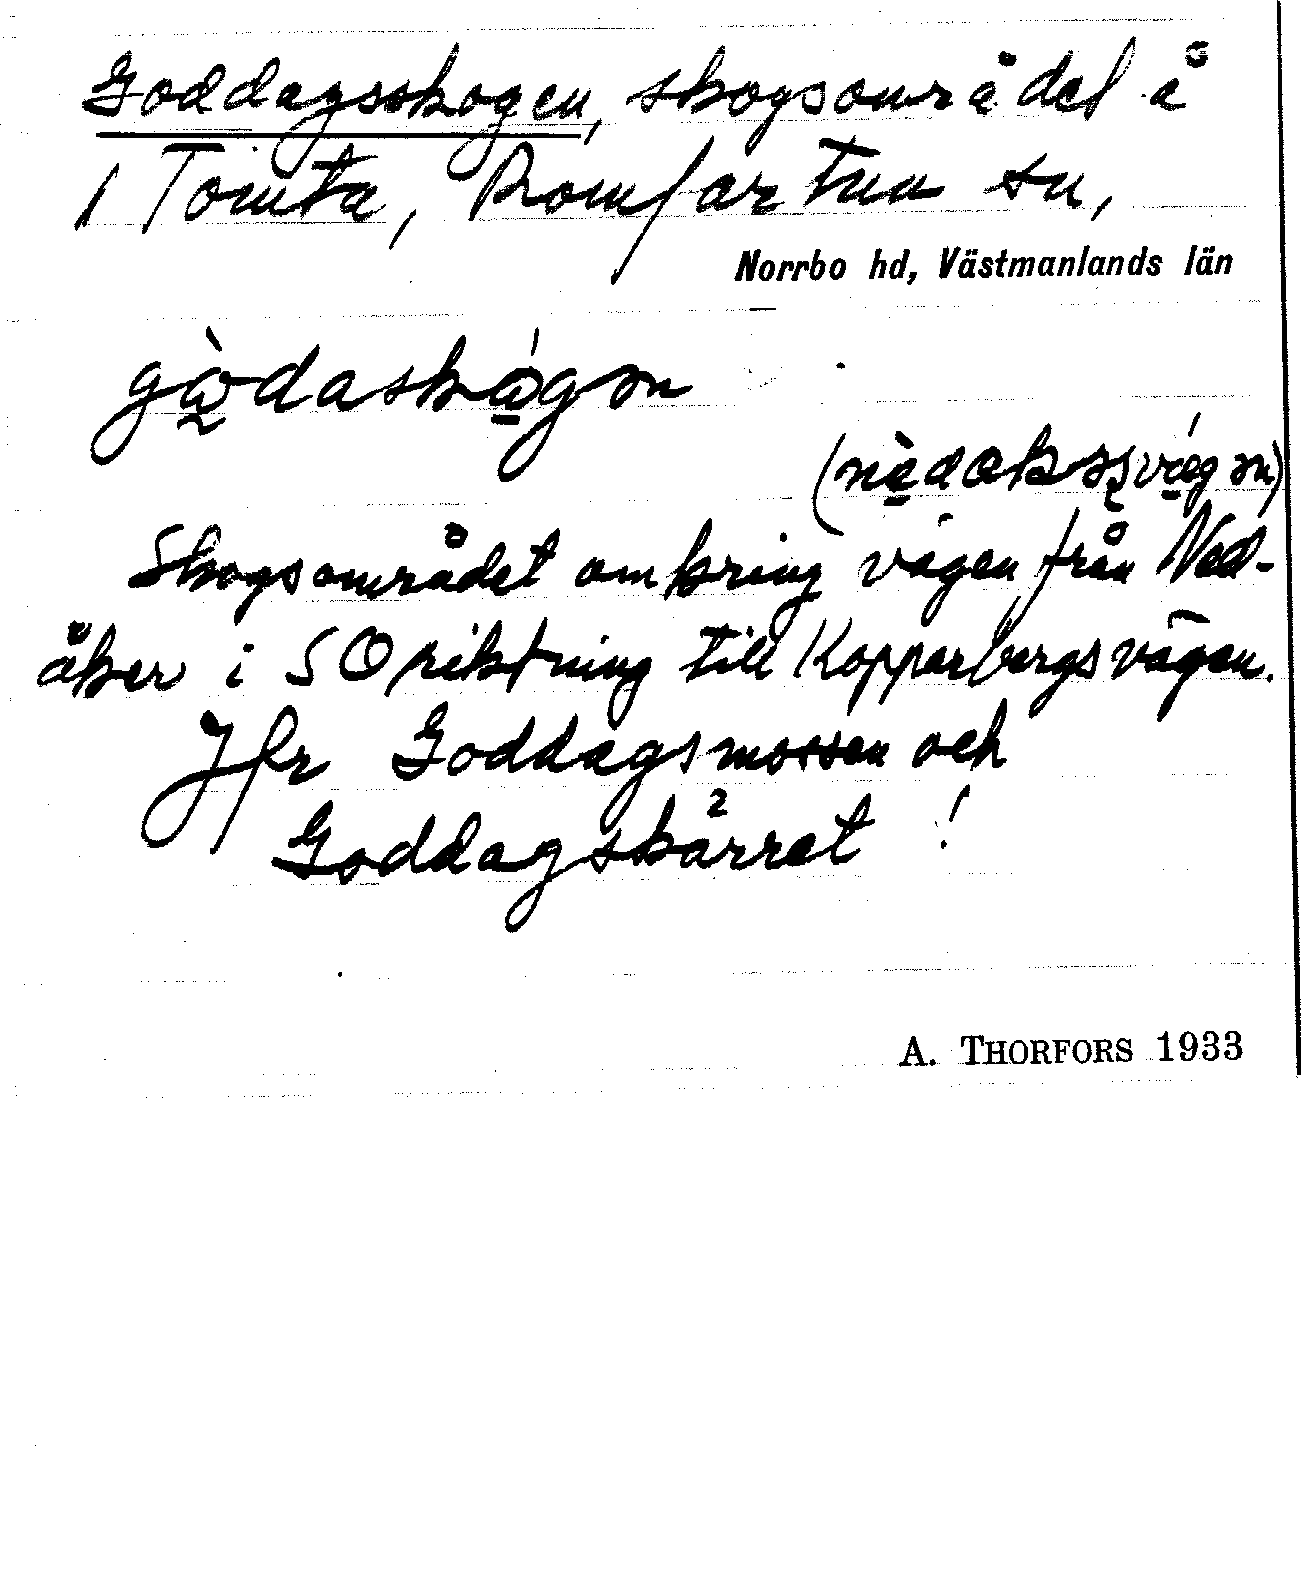 Goddagsskogen, skogsområdet å
1 Tomta, Romfartuna sn,
Norrbo hd, Västmanlands län
Skogsområdet omkring vägen från Ned-
åker i SO riktning till Kopparbergsvägen.
Jfr Goddagsmossen och
Goddagskärret !
A. THORFORS 1933